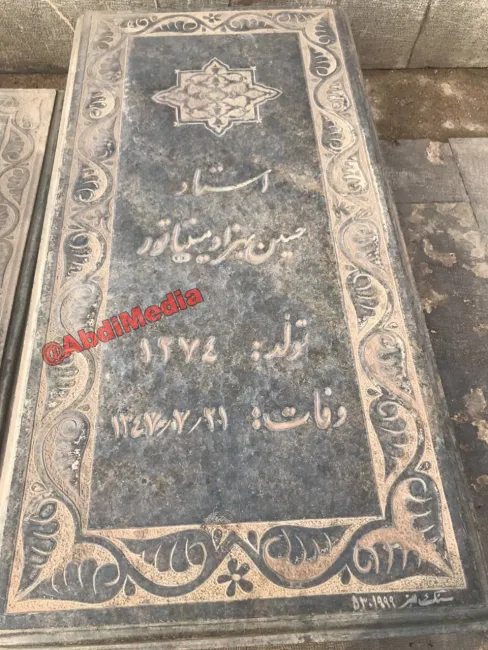 استاد
حسین بهزاد مینیاتور
@AbdiMedia
تولد: ۱۲۷۴
وفات: ۱۳۴۷٫۷٫۲۱
سنگ هنر ۵۳۰۱۹۹۹